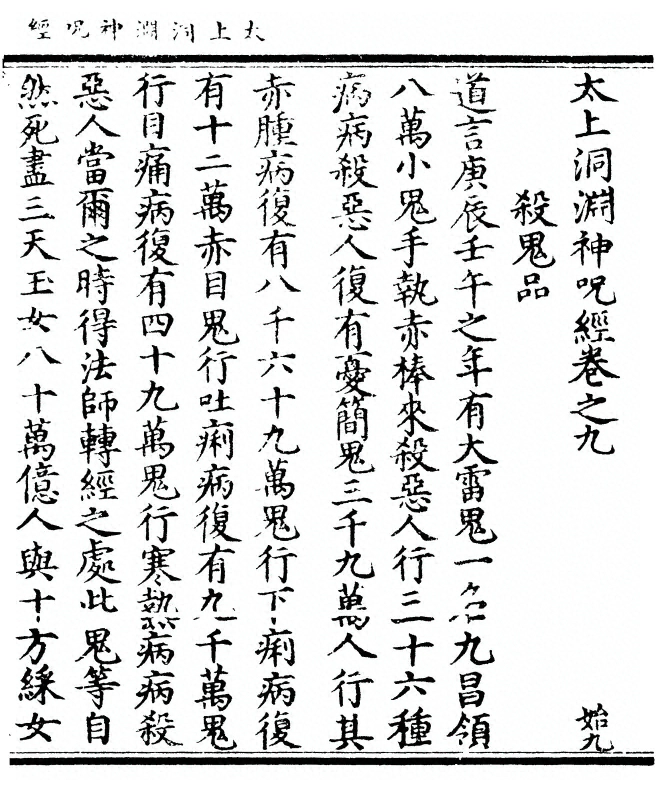 太上洞淵神呪經
太上洞淵神呪經卷之九
始九
殺鬼品
道言庚辰壬午之年有大雷鬼一名九昌領
八萬小鬼手執赤棒來殺惡人行三十六種
病病殺惡人復有憂簡鬼三千九萬人行其
赤腫病復有八千六十九萬鬼行下痢病復
有十二萬赤目鬼行吐痢病復有九千萬鬼
行目痛病復有四十九萬鬼行寒熱病病殺
惡人當爾之時得法師轉經之處此鬼等自
然死盡三天玉女八十萬億人與十方綵女